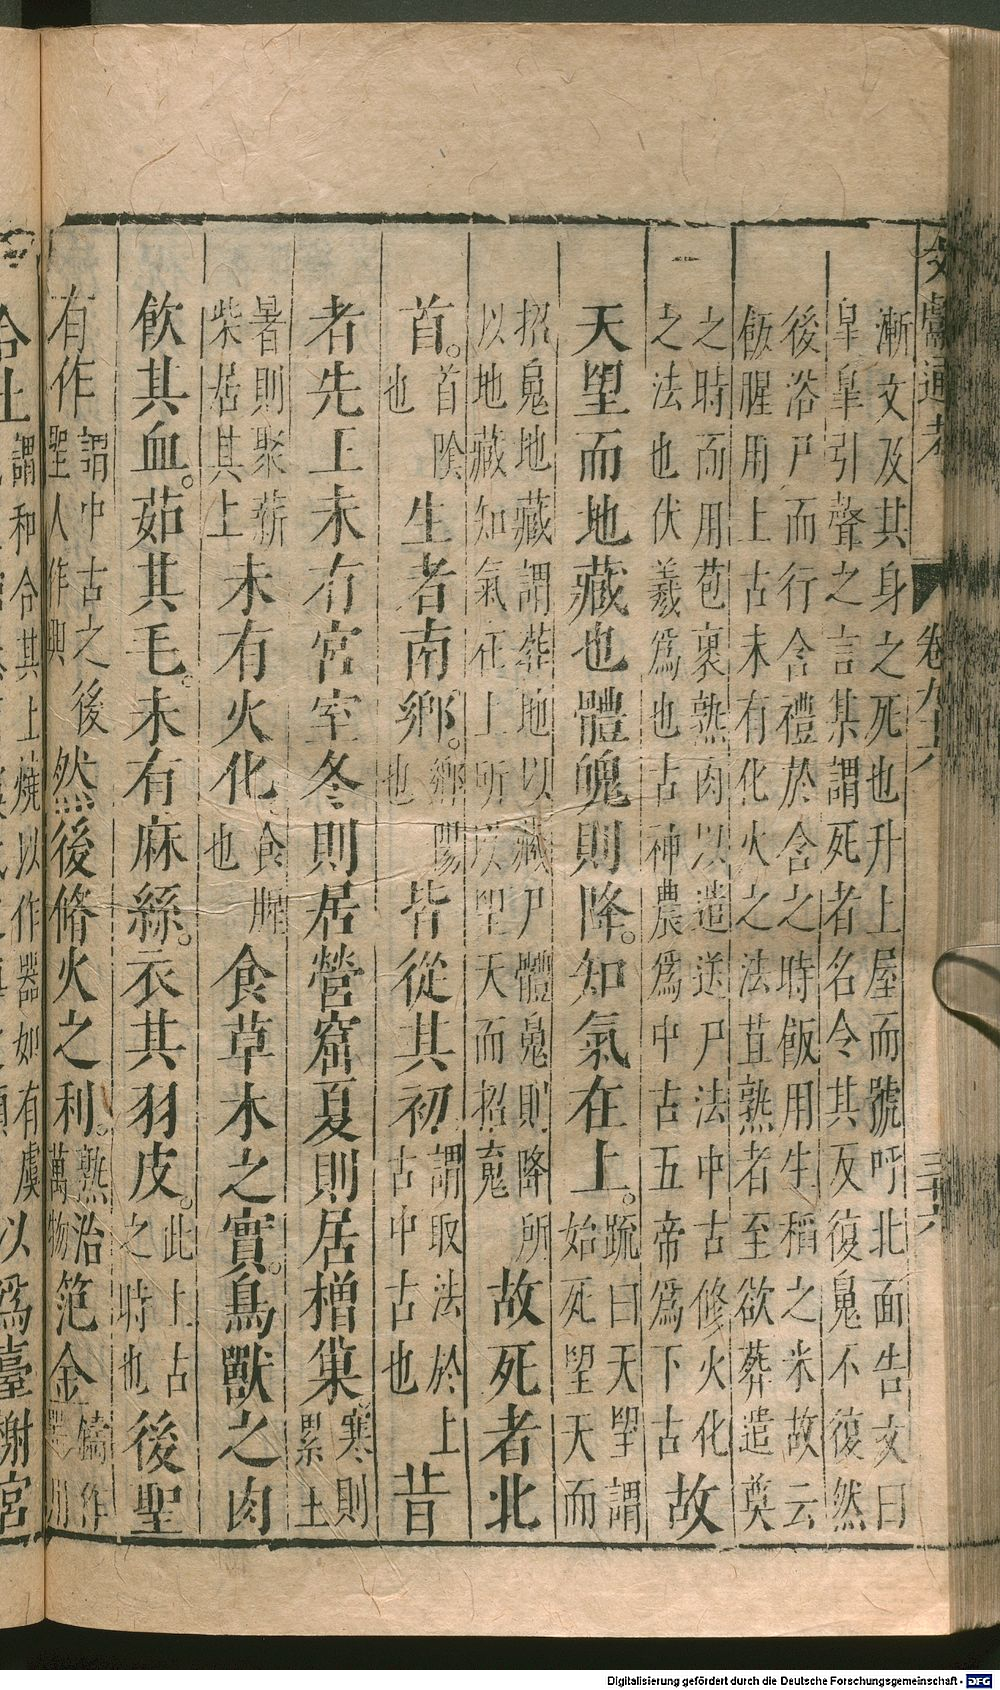 文獻通考 卷九十六 三十六
漸文及其身之死也升上屋而號呼北面告文曰
皐皐引聲之言某謂死者名令其反復䰟不復然
後浴尸而行含禮於含之時飯用生稻之米故云
飯腥用上古未有化火之法苴熟者至欲葬遣奠
之時而用苞裹熟肉以遣送尸法中古修火化
之法也伏羲爲也古神農爲中古五帝爲下古故
天朢而地藏也體魄則降。知氣在上。疏曰天朢謂
始死朢天而
招䰟地藏謂葬地以藏尸體䰟則降所
以地藏知氣在上所以朢天而招䰟故死者北
首。首陰
也生者南鄉。鄉陽
也皆從其初謂取法於上
古中古也昔
者先王未有宮室冬則居營窟夏則居橧巢寒則
累土
暑則聚薪
柴居其上未有火化食腥
也食草木之實。鳥獸之肉
飲其血。茹其毛。未有麻絲。衣其羽皮。此上古
之時也後聖
有作謂中古之後
聖人作與然後脩火之利。熟治
萬物范金鑄作
器用
合土謂和合其上燒以作器如有虞以爲臺榭宮